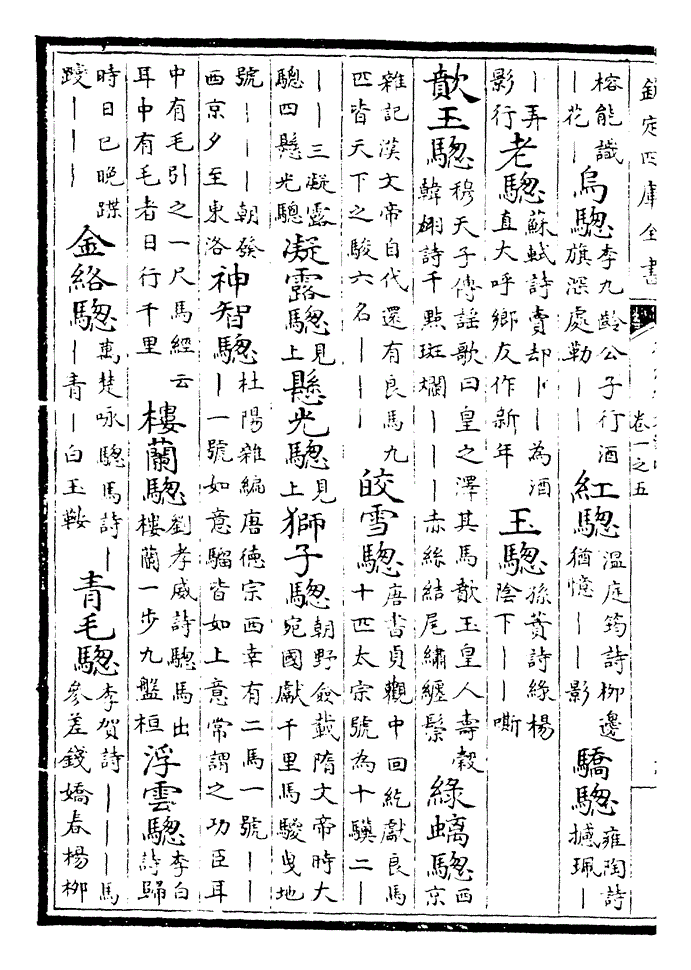 欽定四庫全書 卷一之五
榕能識｜花｜ 烏驄 李九齡公子行酒旗深處勒｜｜ 紅驄 溫庭筠詩柳邊猶憶｜｜影 驕驄 雍陶詩撼珮｜
｜弄影行 老驄 蘇軾詩賣却｜｜為酒直大呼鄉友作新年 玉驄 孫蕡詩綠楊陰下｜｜嘶
歕玉驄 穆天子傳謠歌曰皇之澤其馬歕玉皇人壽穀韓翃詩千點斑斕｜｜｜赤絲結尾繡纏鬃 綠螭驄 西京
雜記漢文帝自代還有良馬九匹皆天下之駿六名｜｜｜ 皎雪驄 唐書貞觀中回紇獻良馬十匹太宗號為十驥二｜
｜｜三凝露驄四懸光驄 凝露驄 見上 懸光驄 見上 獅子驄 朝野僉載隋文帝時大宛國獻千里馬駿曳地
號｜｜｜朝發西京夕至東洛 神智驄 杜陽雜編唐德宗西幸有二馬一號｜｜｜一號如意騮皆如上意常謂之功臣耳
中有毛引之一尺馬經云耳中有毛者日行千里 樓蘭驄 劉孝威詩驄馬出樓蘭一步九盤桓 浮雲驄 李白詩歸
時日已晚蹀躞｜｜｜ 金絡驄 萬楚咏驄馬詩｜｜青｜白玉鞍 青毛驄 李賀詩｜｜｜馬參差錢嬌春楊柳